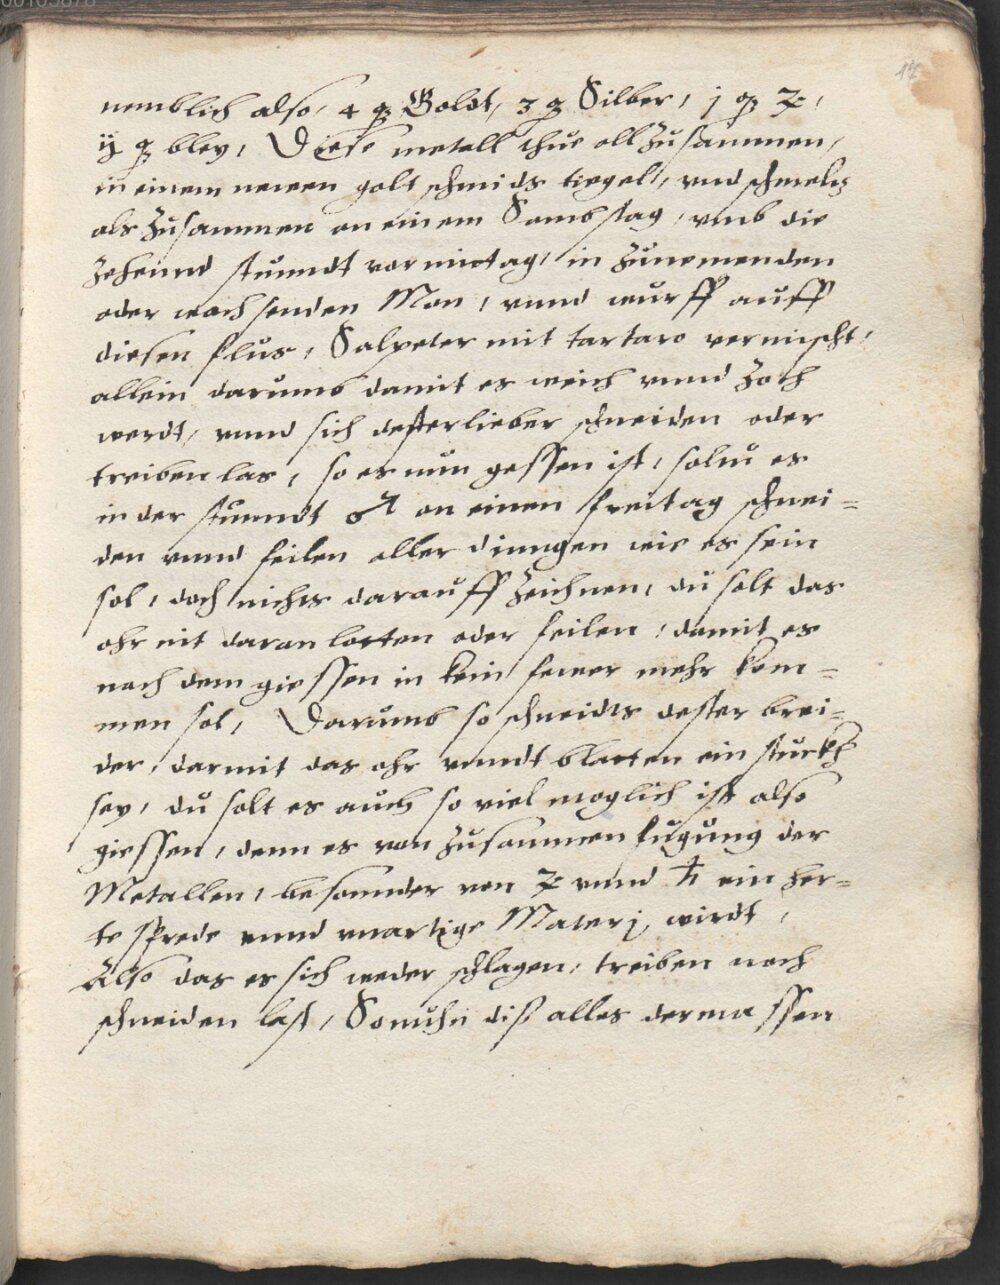 17
nemblich also, 4 q̃ Goldt, 3 q̃ Silber, j q̃ ♃,
ij q̃ bley, Diese metall thue all zusammen,
in einem newen golt schmids tiegel, vnd schmeltz
als zusammen an einem Sambstag, vmb die
zehennd stunndt vormittag, in zunemenden
oder wachsenden Mon, vnnd wurff auff
diesen flus, Salpeter mit tartaro vermischt,
allein darumb damit es weich vnnd zäch
werdt, vnnd sich desterlieber schneiden oder
treiben las, so es nun gossen ist, soltu es
in der stunndt ♂ an einen freitag schnei=
den vnnd feilen aller dinngen wie es sein
sol, doch nichts darauff zeichnen, du solt das
ohr nit daran lotten oder feilen, damit es
nach dem giessen in kein fewer mehr kom=
men sol, Darumb so schneidts dester brei=
der, darmit das ohr vnndt blatten ein stuckh
sey, du solt es auch so viel moglich ist also
giessen, denn es von zusammen fugung der
Metallen, besonnder von ♃ vnnd ♄ ein her=
te sprede vnnd vnartige Materj wirdt,
Also das es sich weder schlagen, treiben noch
schneiden last, diß alles dermassen